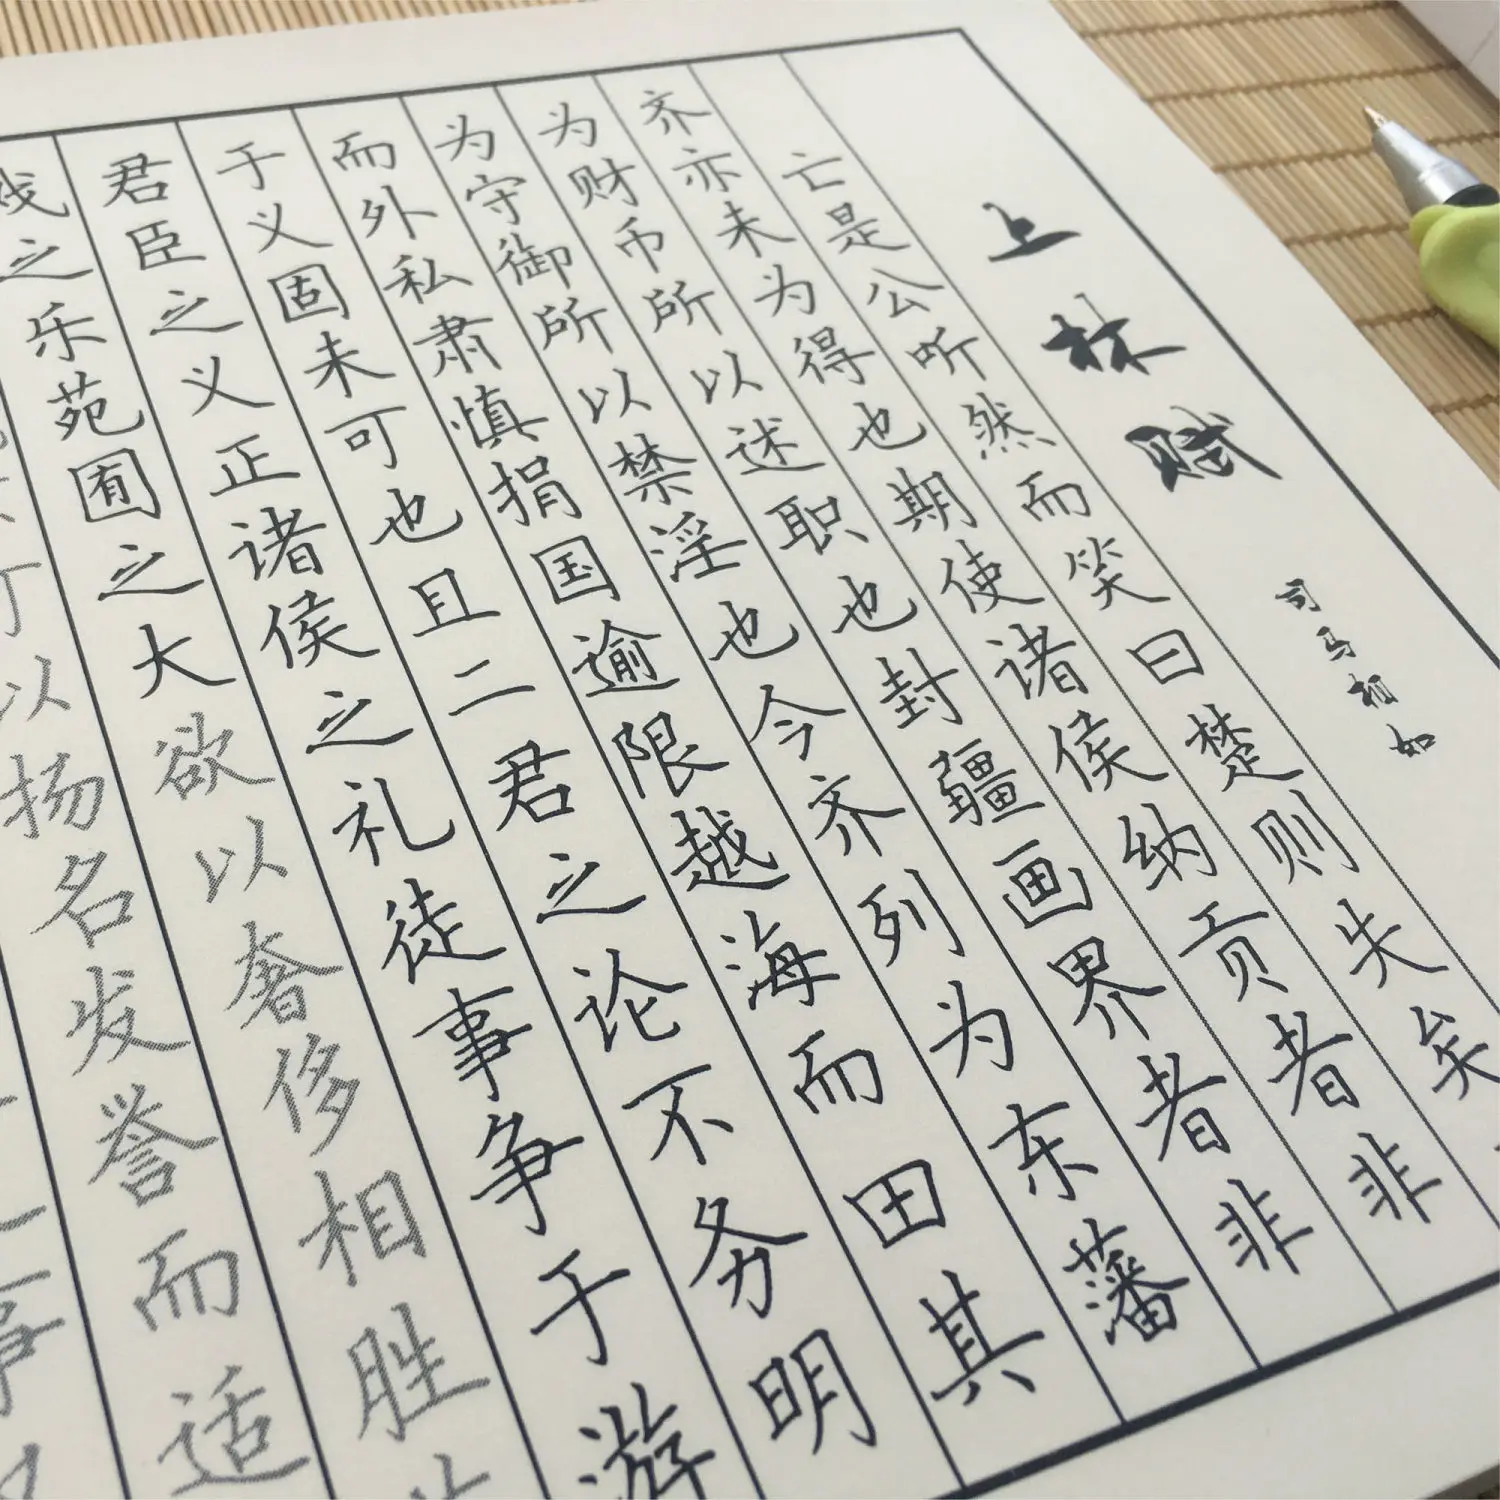 上林赋
司马相如
亡是公听然而笑曰楚则失矣
齐亦未为得也期使诸侯纳贡者非
为财币所以述职也封疆画界者非
为守御所以禁淫也今齐列为东藩
而外私肃慎捐国逾限越海而田其
于义固未可也且二君之论不务明
君臣之义正诸侯之礼徒事争于游
戏之乐苑囿之大欲以奢侈相胜
可以扬名发誉而适